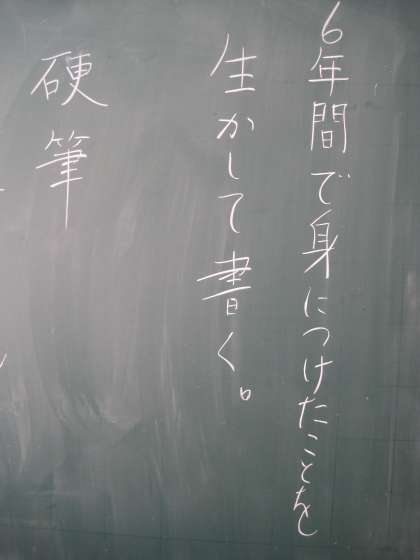 6年間で身につけたことを
生かして書く。
硬筆